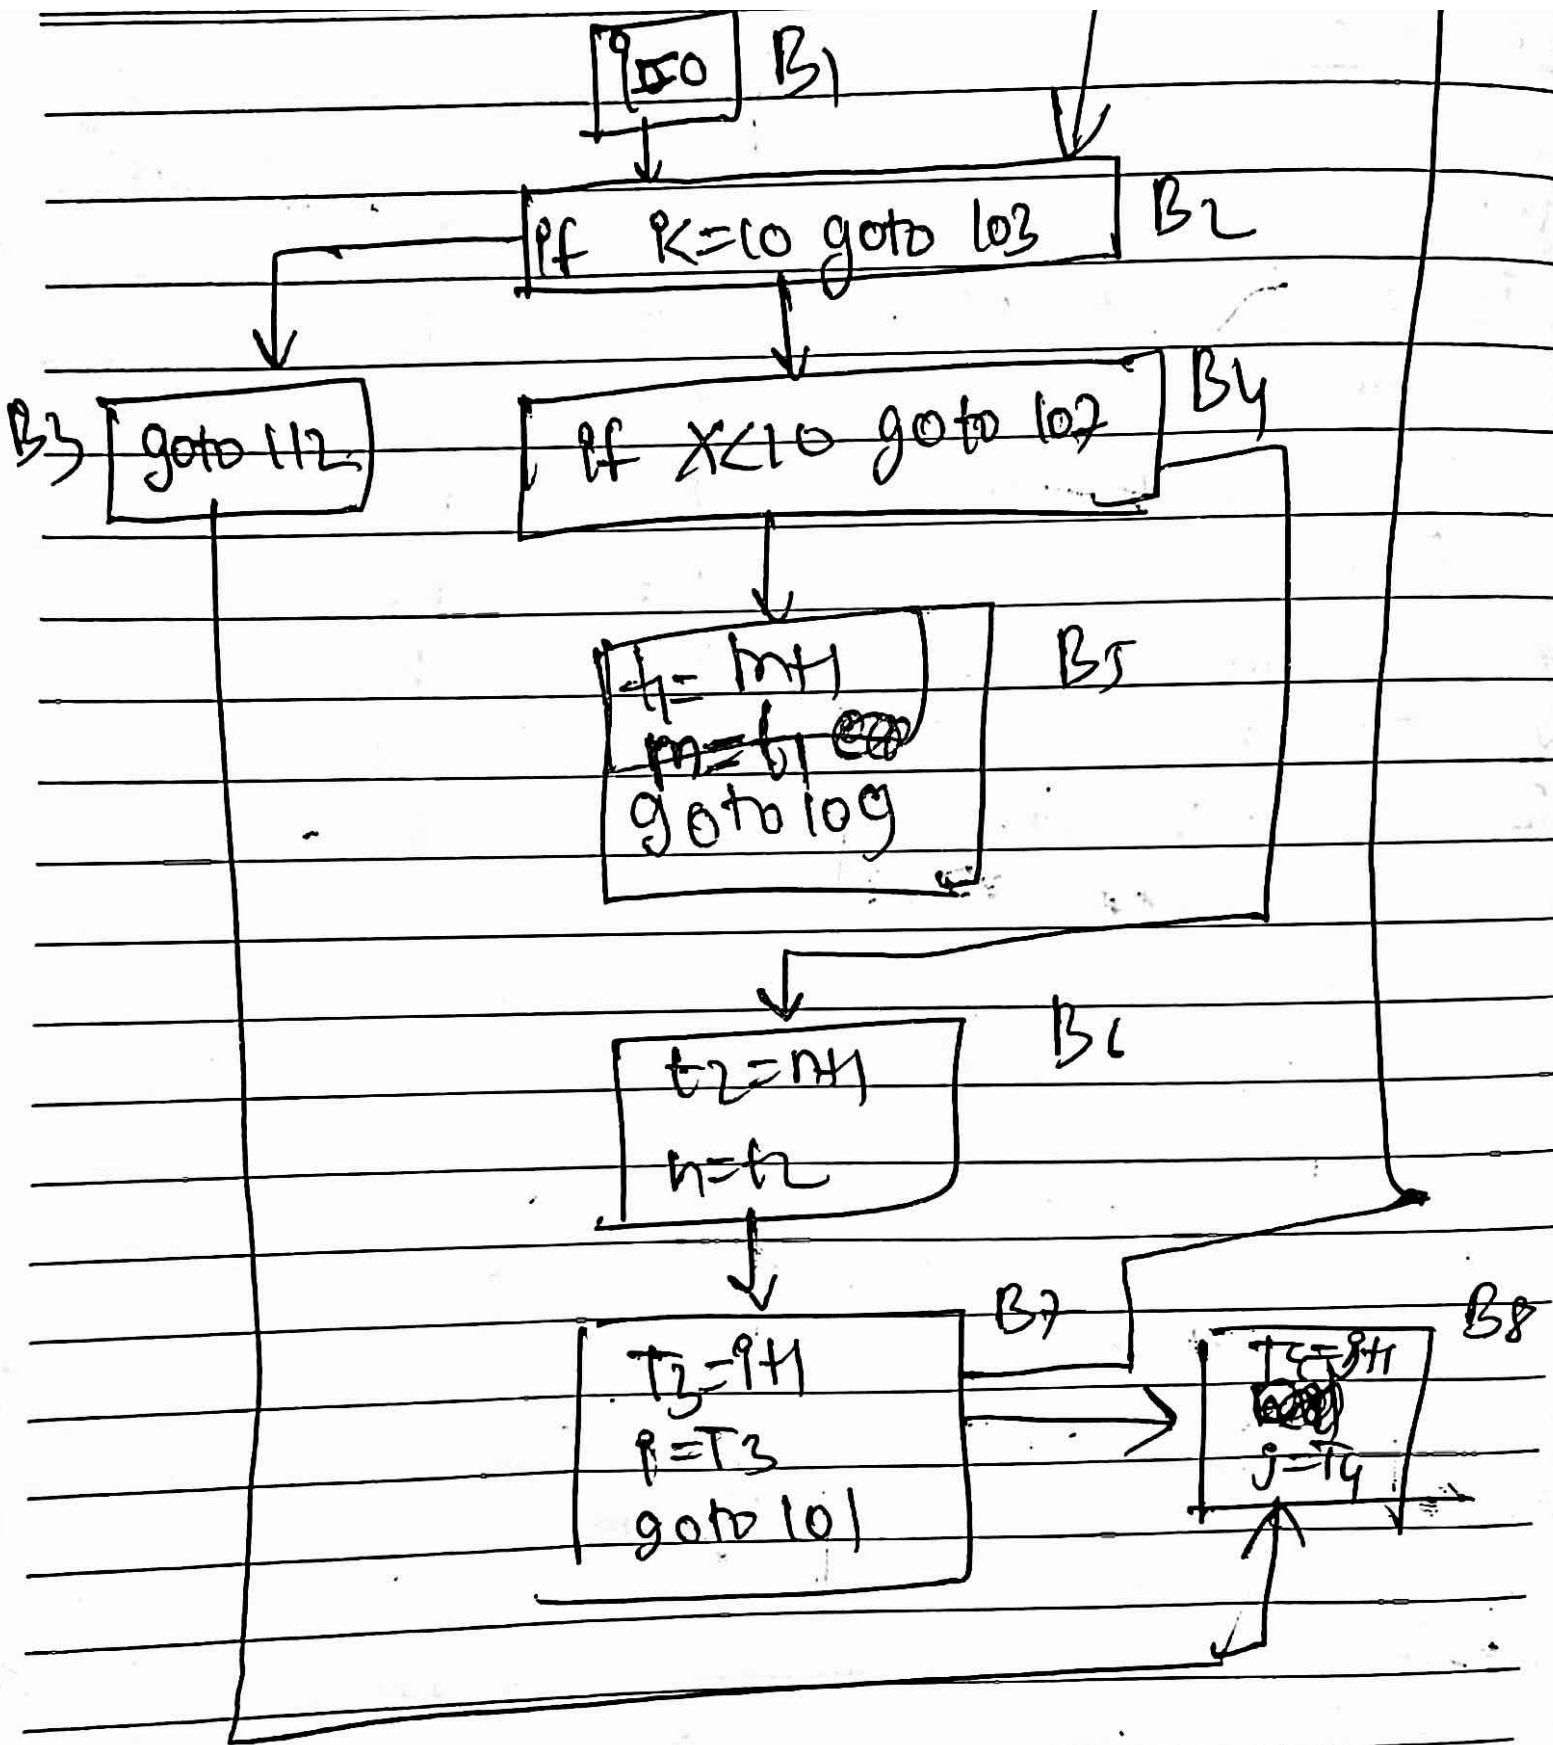 i=0 B1
if i<=10 goto 103 B2
B3 goto 112
if X<10 goto 107 B4
t1= m+1 B5
m=t1
goto 109
t2=n+1 B6
n=t2
B7
T3=i+1
i=T3
goto 101
B8
j=T4